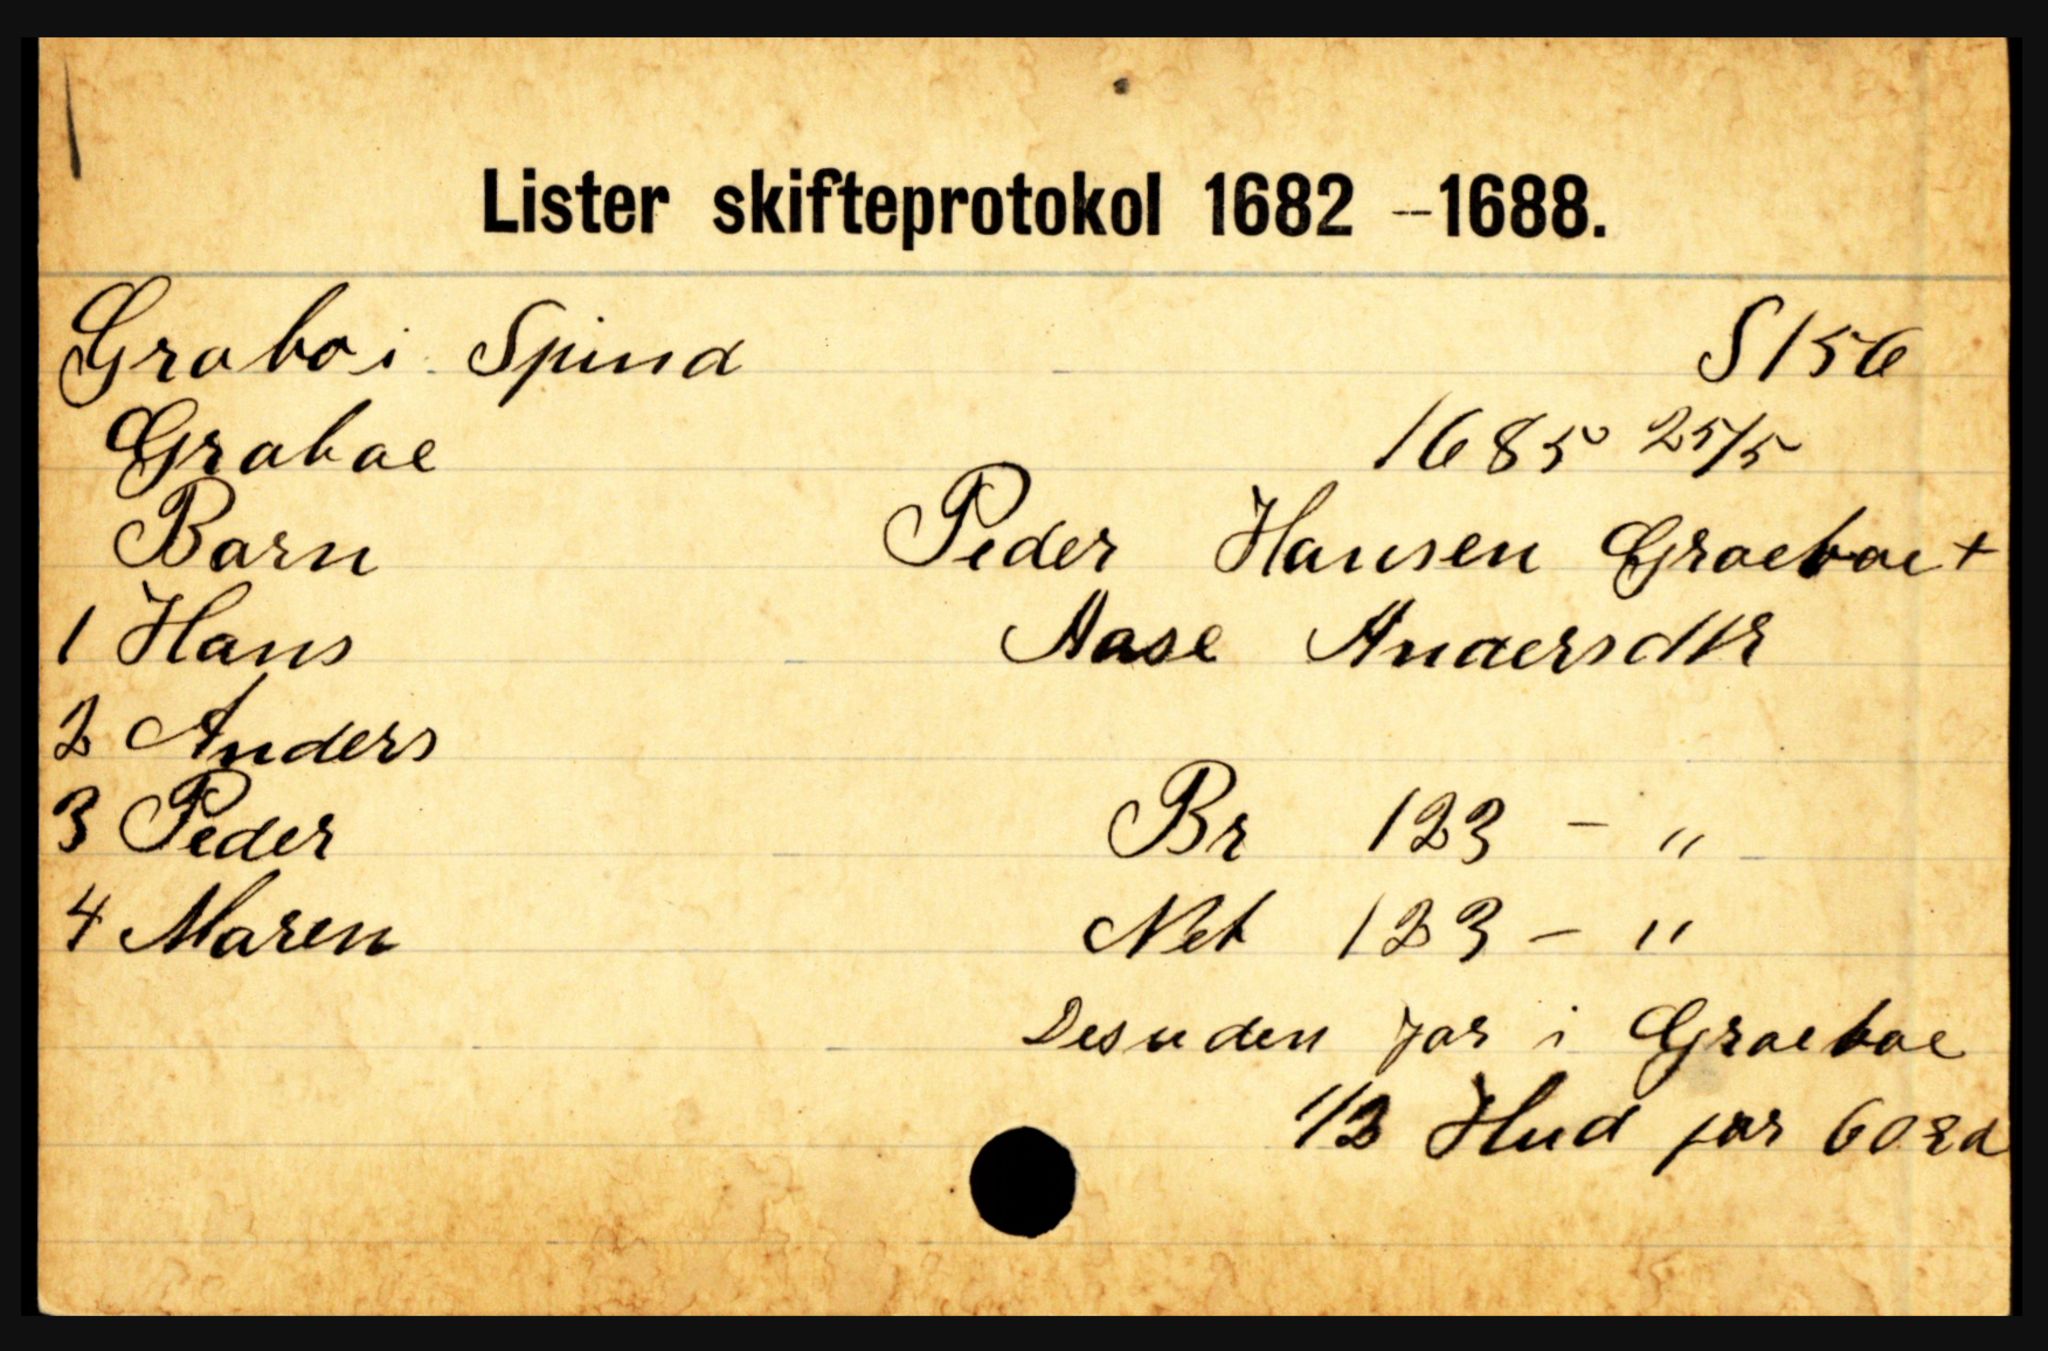 Lister skifteprotokol 1682 – 1688.
Grabo i Spind S 156
Grabae 1685 25/5
Barn Peder Hansen Graebae +
1 Hans Aase Andersdtr
2 Anders
3 Peder Br 123 - "
4 Maren Net 123 - "
Desuden jor i Graebae
1/2 Hud for 60 rd